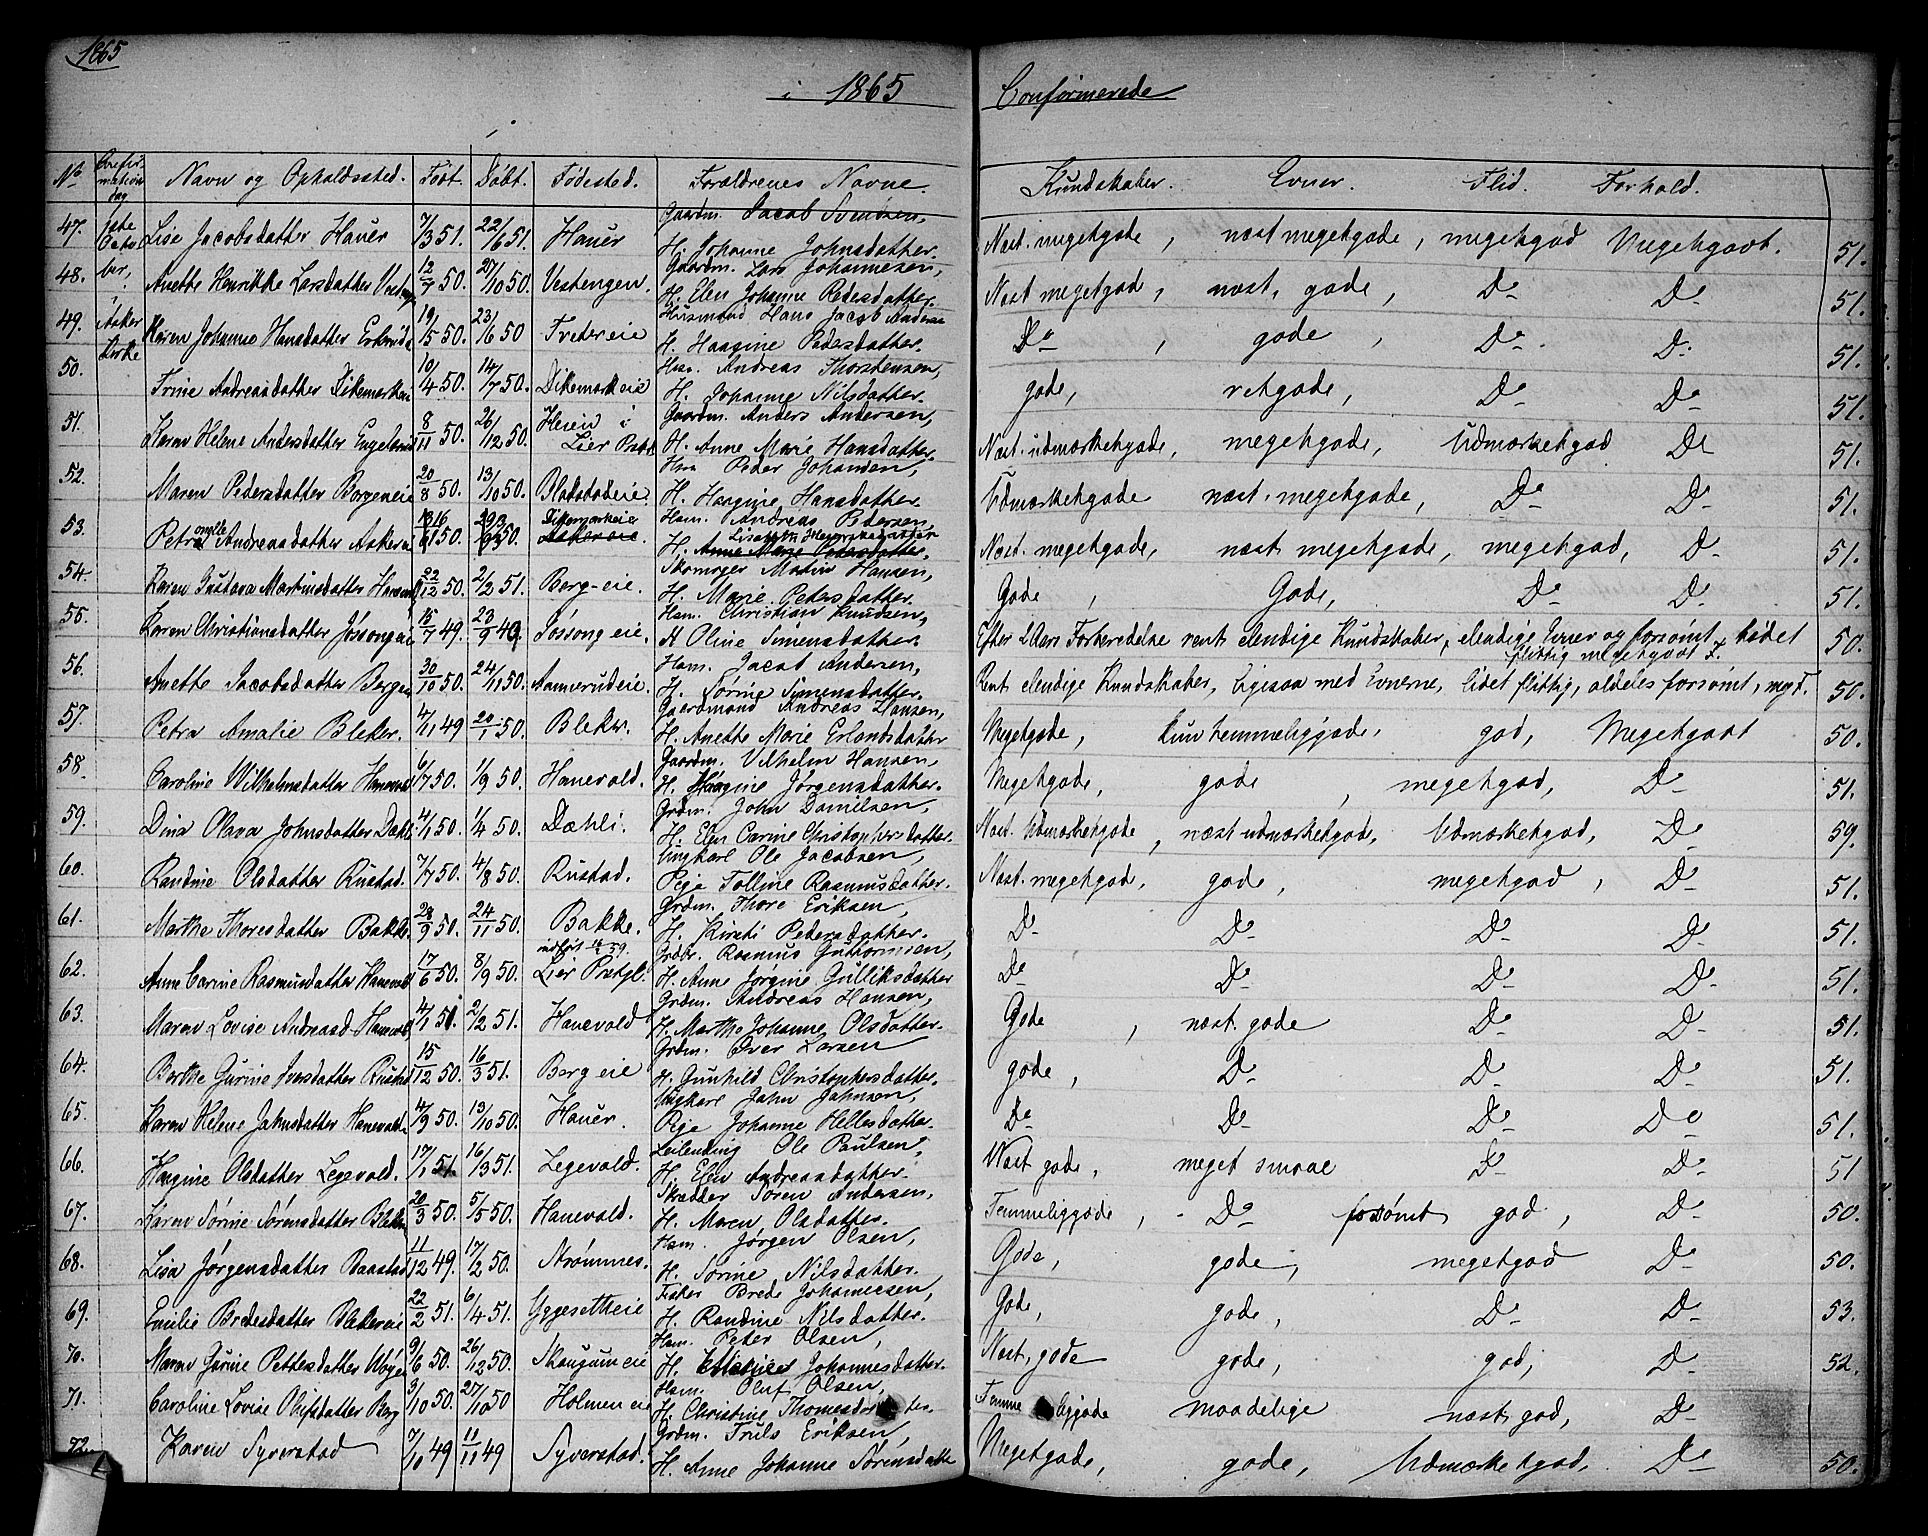 1865
i 1865 Confirmerede
No. Confirmationsdag Navn og Opholdssted. Født. Døbt. Fødested. Forældrenes Navne. Kundskaber. Evner. Flid. Forhold.
47. Lise Jacobsdatter Hauer 7/3 51. 22/6 51. Hauer Gaardm. Jacob Svendsen, H. Johanne Johnsdatter. Næst. megetgode, næst megetgode, megetgod Megetgodt. 51.
48. Anette Henrikke Larsdatter 12/7 50. 27/10 50. Vestengen. Gaardm. Lars Johannesen, H. Elen Johanne Pedersdatter. Næst megetgod, næst, gode, Do Do 51.
49. i Asker Kirke Karen Johanne Hansdatter 19/5 50. 23/6 50 Husmand Hans Jacob Anders H. Haagine Pedersdatter. Do, gode, Do Do 51.
50. Trine Andreasdatter Dikemarkeie 10/4 50. 14/7 50. Dikemarkeie Hsm. Andreas Thorstensen, H. Johanne Nilsdatter. gode, retgode, Do Do 51.
51. Karen Helene Andersdatter 8/11 50. 26/12 50. i Lier Gaardm. Anders Andersen, H. Anne Marie Hansdatter. Næst. udmærketgode, megetgode, Udmærketgod Do 51.
52. Maren Pedersdatter Borgeneie 20/8 50. 13/10 50. Hsm Peder Johansen, H. Haagine Hansdatter. Udmærketgode næst. megetgode, Do Do 51.
53. Petronelle Andreasdatter 50. 50. Dikemarkeie Askereie. Hsm. Andreas Pedersen, H. Anne Marie Pedersdatter. Næst. megetgode, næst megetgode, megetgod, Do 51.
54. Karen Gustava Martinsdatter 22/12 50. 2/2 51. Berg-eie. Skomager Martin Hansen, H. Marie Pedersdatter Gode, Gode, Do Do 51.
55. Karen Christiansdatter Jøssongeie 15/7 49. 23/9 49. Jøssong eie. Hsm. Christian Knudsen, H Oline Simensdatter. Efter 2 Aars Forberedelse rent elendige Kundskaber, elendige Evner og forsømt, lidet flittig megetgodt F. 50.
56. Anette Jacobsdatter Bergeneie 30/10 50. 24/11 50. Aamerudeie. Hsm. Jacob Andersen, H. Sørine Simensdatter. Rent elendige Kundskaber, ligesaa med Evnerne, lidet flittig, aldeles forsømt, meg F. 50.
57. Petra Amalie Bleker. 4/11 49 20/1 50. Bleker. Gaardmand Andreas Hansen, H. Anette Marie Erlandsdatter Megetgode, kun temmeliggode, god, Megetgodt 50.
58. Caroline Wilhelmsdatter 6/7 50. 1/9 50. Hanevold. Gaardm. Vilhelm Hansen, H. Haagine Jørgensdatter. Megetgode, gode, megetgod, Do 51.
59. Dina Olava Johnsdatter Dæhli 4/1 50. 1/4 50. Dæhli. Grdm. John Danielsen, H. Elen Carine Christophersdatter. Næst. Udmærketgode, næst udmærketgode, Udmærketgod, Do 59.
60. Randine Olsdatter Rustad. 7/7 50. 4/8 50. Rustad. Ungkarl Ole Jacobsen, Pige Tolline Rasmusdatter. Næst. megetgod, gode, megetgod, Do 51.
61. Marthe Thoresdatter Bakke. 28/9 50. 24/11 50. Bakke. Grdm. Thore Eriksen, H. Kirsti Pedersdatter. Do Do Do Do 51.
62. Anne Carine Rasmusdatter 17/6 50. 8/9 50. Lier Præstgl. Rasmus Guttormsen, H. Anne Jørgine Gulliksdatter Do Do Do Do 51.
63. Maren Lovise Andreasd Hanevold 4/1 51. 2/2 51. Hanevold Grdm. Andreas Hansen, H. Marthe Johanne Olsdatter. Gode, næst. gode Do Do 51.
64. Berthe Gurine Iversdatter Rustad 15/12 50. 16/3 51. Berg eie Grdm. Iver Larsen H. Gunhild Christophersdatter. gode, Do Do Do 51.
65. Karen Helene Jahnsdatter Hanevold 4/9 50. 13/10 50. Hauer. Ungkarl Jahn Jahnsen, Pige Johanne Hellesdatter. Do Do Do Do 51.
66. Haagine Olsdatter Legevold. 17/1 51. 16/3 51. Legevold. Leilending Ole Paulsen, H. Elen Andreasdatter. Næst gode, meget smaae Do Do 51
67. Karen Sørine Sørensdatter Bleker 20/3 50. 5/5 50. Hanevold. Skredder Søren Andersen, H. Maren Olsdatter. Temmeliggode, Do forsømt god, Do 50.
68. Lisa Jørgensdatter Baastad 11/12 49. 17/2 50. Strømmes. Hsm. Jørgen Olsen, H. Sørine Nilsdatter. Gode, gode, megetgod Do 50.
69. Emilie Bredesdatter Blekereie 22/2 51. 6/4 51. Yggesetheie Fisker Brede Johannesen, H. Randine Nilsdatter. Gode, gode, Do Do 53.
70. Maren Gurine Pettersdatter 9/6 50. 26/12 50. Skaugum eie Hsm. Peter Olsen, H. Johannesdatter. Næst, gode gode, god, Do 52.
71. Caroline Lovise Olufsdatter Berg 3/10 50. 27/10 50 Holmen eie Hsm. Oluf Olsen, H. Christine Temmeliggode maadelige næst god, Do
72. Karen Syverstad 7/10 49 11/11 49 Syverstad. Grdm. Truls Eriksen, H. Anne Johanne Sørensdatte Megetgode, gode, Udmærketgod, Do 50.